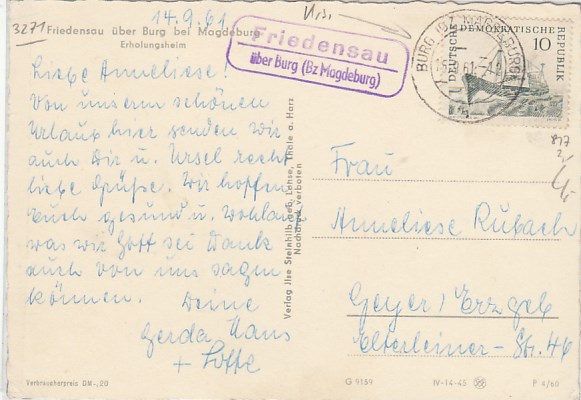 3271
14.9.61
Friedensau über Burg bei Magdeburg
Erholungsheim
Liebe Anneliese!
Von unserm schönen
Urlaub hier senden wir
auch Dir u. Ursel recht
liebe Grüße. Wir hoffen
Euch gesund u. wohlauf
was wir Gott sei Dank
auch von uns sagen
können.
Deine
Gerda Hans
+ Lotte
Verbraucherpreis DM -,20
Verlag Ilse Steinhilb, geb. Lehse, Thale a. Harz
Nachdruck verboten
Friedensau
über Burg (Bz Magdeburg)
BURG (BZ MAGDEBURG)
DEUTSCHE DEMOKRATISCHE REPUBLIK
10
Frau
Anneliese Rubach
Geyer/Erzgeb
Elterleiner-Str. 46
G 9159
IV-14-45
P 4/60